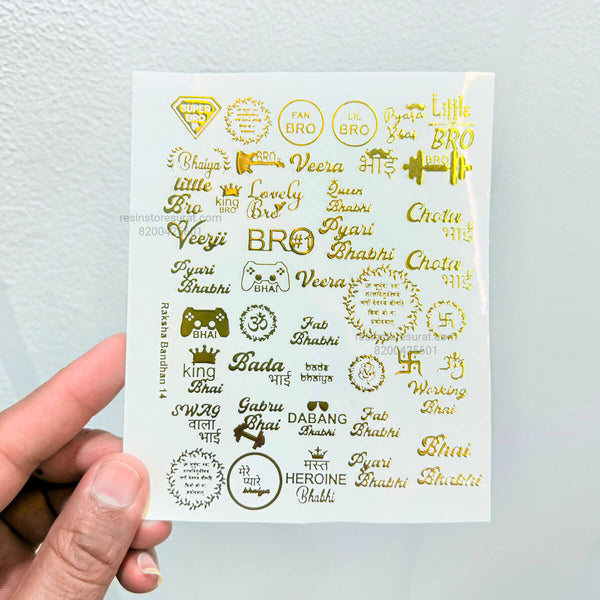 SUPER
BRO
FAN
BRO
LIL
BRO
Pyara
Bhai
Little
BRO
Bhaiya
BRO
Veera
भाई
BRO
little
Bro
king
BRO
Lovely
Bro
Queen
Bhabhi
Chota
भाई
resinstoresurat.com
8200425601
Veerji
BRO
#1
Pyari
Bhabhi
Chota
भाई
Pyari
Bhabhi
BHAI
Veera
BHAI
ॐ
Fab
Bhabhi
resinstoresurat.com
8200425601
Raksha Bandhan 14
king
Bhai
Bada
भाई
bada
bhaiya
Working
Bhai
SWAG
वाला
भाई
Gabru
Bhai
DABANG
Bhabhi
Fab
Bhabhi
Bhai
Bhabhi
मेरे
प्यारे
bhaiya
मस्त
HEROINE
Bhabhi
Pyari
Bhabhi